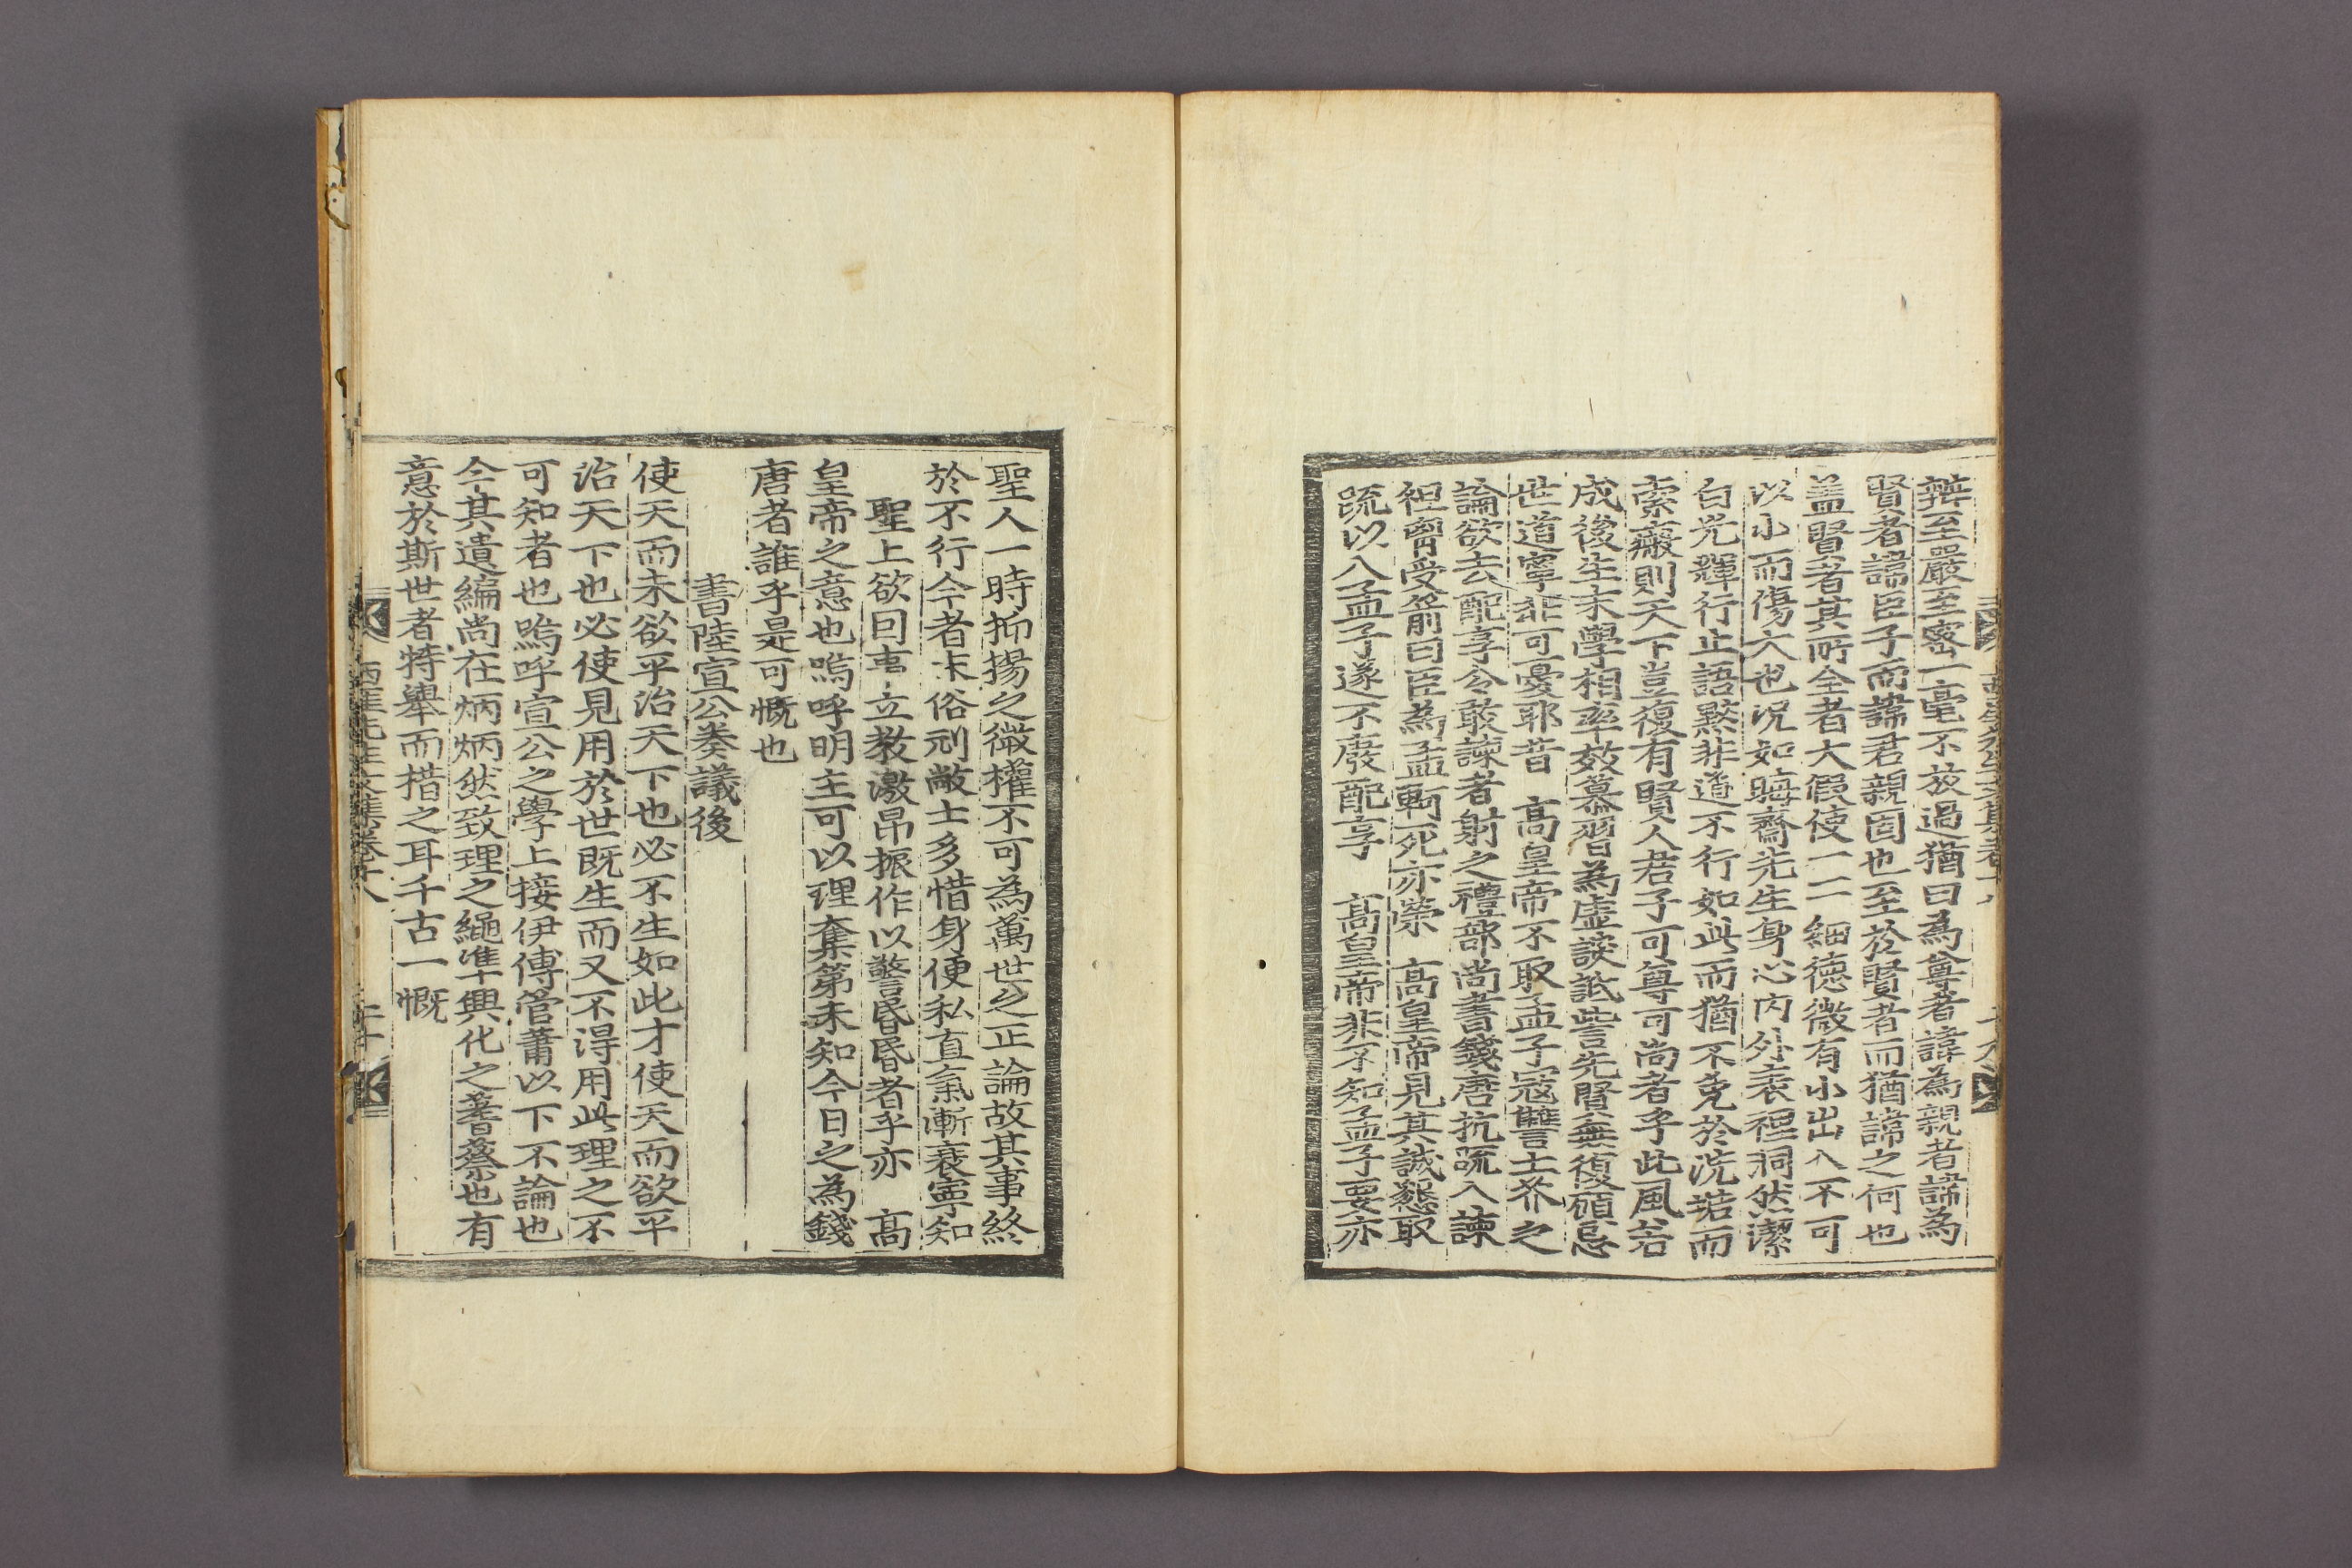 辨至嚴至密一毫不放過猶曰為尊者諱為親者諱為
賢者諱臣子而諱君親固也至於賢者而猶諱之何也
盖賢者其所全者大假使一二細德微有小出入不可
以小而傷大也况如晦齋先生身心內外表裡洞然潔
白光輝行止語默非道不行如此而猶不免於洗垢而
索瘢則天下豈復有賢人君子可尊可尚者乎此風若
成後生末學相率效慕習為虛談詆訾先賢無復顧忌
世道寧非可憂耶昔 高皇帝不取孟子寇讐土芥之
論欲去配享令敢諫者射之禮部尚書錢唐抗疏入諫
袒胷受箭曰臣為孟軻死亦榮 高皇帝見其誠懇取
疏以入孟子遂不廢配享 高皇帝非不知孟子要亦
聖人一時抑揚之微權不可為萬世之正論故其事終
於不行今者末俗刓敝士多惜身便私直氣漸衰寧知
聖上欲因事立教激昂振作以警昏昏者乎亦 高
皇帝之意也嗚呼明主可以理奪第未知今日之為錢
唐者誰乎是可慨也
書陸宣公奏議後
使天而未欲平治天下也必不生如此才使天而欲平
治天下也必使見用於世既生而又不得用此理之不
可知者也嗚呼宣公之學上接伊傅管蕭以下不論也
今其遺編尚在炳炳然致理之繩準興化之蓍蔡也有
意於斯世者特舉而措之耳千古一慨
西厓先生文集卷十八 二十